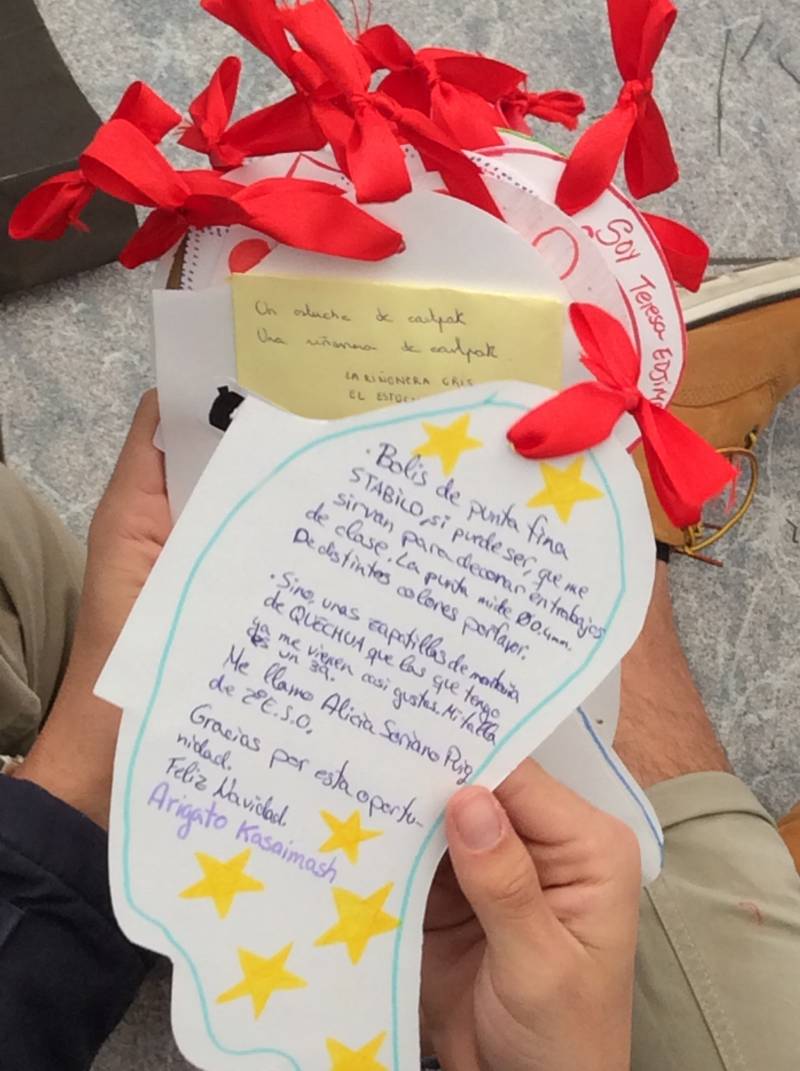 Un estuche de eastpak
Una riñonera de eastpak
LA RIÑONERA GRIS
EL
Soy Teresa
· Bolis de punta fina
STABILO, si puede ser, que me
sirvan para decorar en trabajos
de clase. La punta mide Ø0.4mm.
De distintos colores porfavor.
· Sino, unas zapatillas de montaña
de QUECHUA que las que tengo
ya me vienen casi gustas. Mi talla
es un 39.
Me llamo Alicia Soriano Puig
de 2ºE.S.O.
Gracias por esta oportu-
nidad.
Feliz Navidad
Arigato Kasaimash